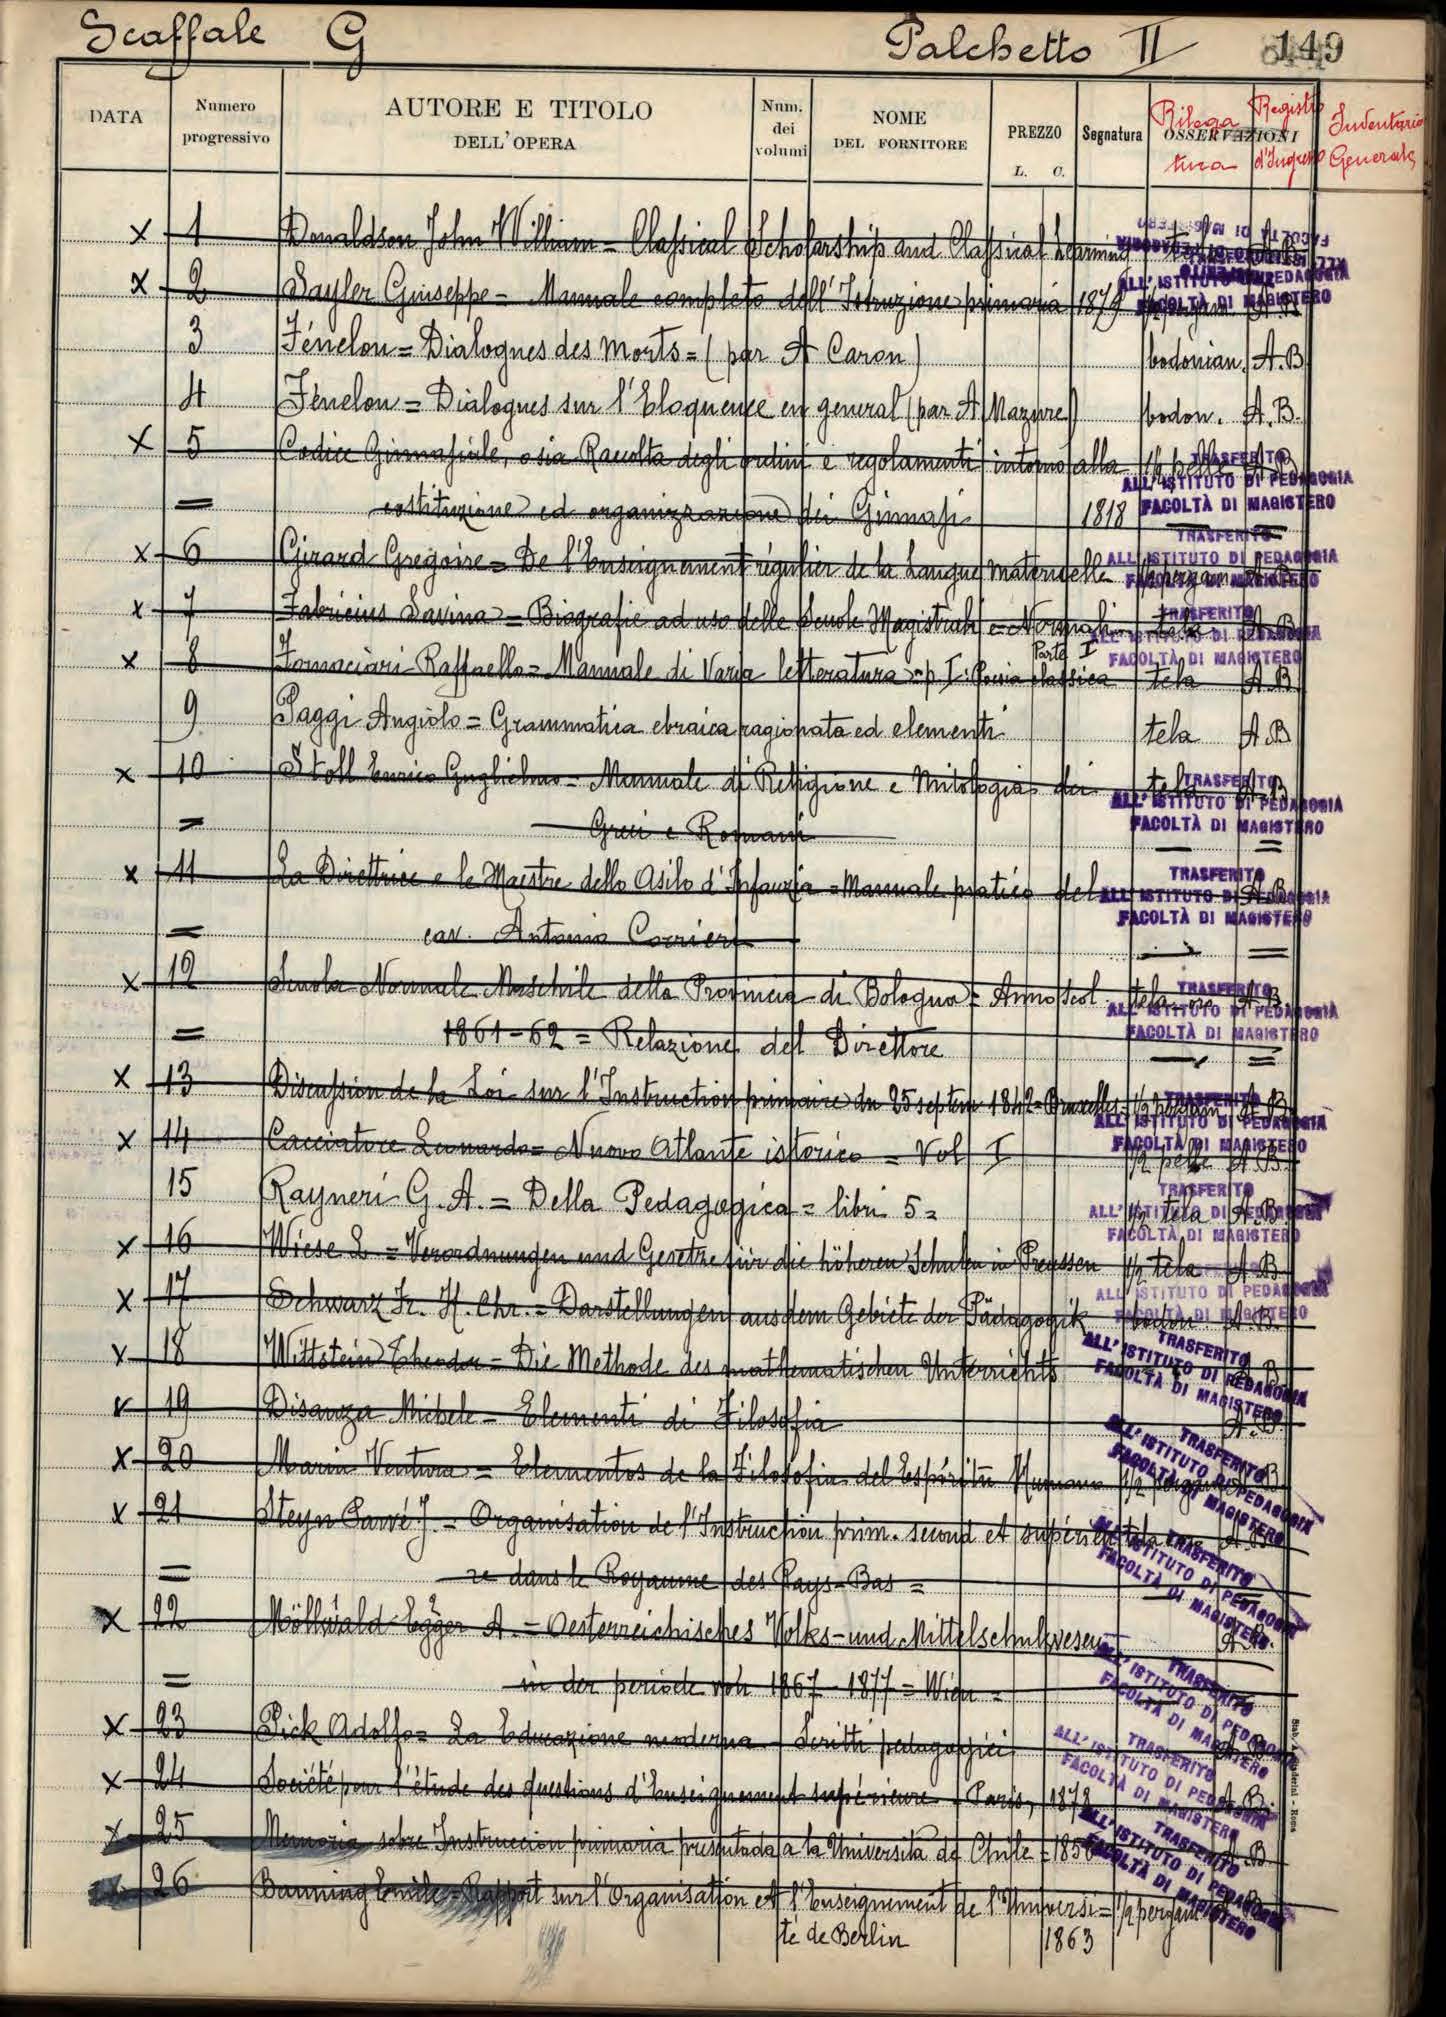 Scaffale G Palchetto II 149
DATA Numero progressivo AUTORE E TITOLO DELL'OPERA Num. dei volumi NOME DEL FORNITORE PREZZO L. C. Segnatura OSSERVAZIONI Rilegatura Registro d'Ingresso Inventario Generale
x 1 Donaldson John William = Classical Scholarship and Classical Learning tela A.B
x 2 Sayler Giuseppe = Manuale completo dell'Istruzione primaria 1879 1/2 pergam A.B
3 Fénelon = Dialogues des Morts = (par A Caron) bodonian. A.B
4 Fénelon = Dialogues sur l'Eloquence en general (par A Mazure) bodon. A.B.
x 5 Codice Ginnasiale, o sia Raccolta degli ordini e regolamenti intorno alla 1/2 pelle A.B
= costituzione ed organizzazione dei Ginnasi 1818 = =
x 6 Girard Gregoire = De l'Enseignement régulier de la Langue maternelle 1/2 pergam A.B
x 7 Fabricius Savina = Biografie ad uso delle Scuole Magistrali e Normali tela A.B
Parte I
x 8 Fornaciari Raffaello = Manuale di Varia letteratura = p. I: Poesia classica tela A.B
9 Paggi Angiolo = Grammatica ebraica ragionata ed elementi tela A.B
x 10 Stoll Enrico Guglielmo = Manuale di Religione e Mitologia dei tela A.B
= Greci e Romani = =
x 11 La Direttrice e le Maestre dello Asilo d'Infanzia = Manuale pratico del A.B
= cav. Antonio Corrieri = =
x 12 Scuola Normale Maschile della Provincia di Bologna = Anno scol. tela A.B.
= 1861-62 = Relazione del Direttore = =
x 13 Discussion de la Loi sur l'Instruction primaire du 25 septem 1842 = Bruxelles = 1/2 pergam A.B.
x 14 Cacciatore Leonardo = Nuovo Atlante istorico = Vol I 1/2 pelle A.B.
15 Rayneri G. A. = Della Pedagogica = libri 5 = 1/2 tela A.B.
x 16 Wiese L = Verordnungen und Gesetze für die höheren Schulen in Preussen 1/2 tela A.B
x 17 Schwarz Fr. H. Chr. = Darstellungen aus dem Gebiete der Pädagogik bodon. A.B.
x 18 Wittstein Theodor = Die Methode des mathematischen Unterrichts A.B
x 19 Disanza Michele = Elementi di Filosofia A.B.
x 20 Marin Ventura = Elementos de la Filosofia del Espíritu Humano 1/2 pergam A.B
x 21 Steyn Parvé J. = Organisation de l'Instruction prim. second et supérieu tela A.B
= re dans le Royaume des Pays-Bas = =
x 22 Möllwald Egger A. = Oesterreichisches Volks-und Mittelschulwesen A.B.
= in der periode von 1867-1877 = Wien =
x 23 Pick Adolfo = La Educazione moderna Scritti pedagogici A.B
x 24 Société pour l'étude des questions d'Enseignement supérieure = Paris, 1878 A.B.
x 25 Memoria sobre Instruccion primaria presentada a la Università de Chile = 1856 A.B
26 Banning Emile = Rapport sur l'Organisation et l'Enseignement de l'Universi= 1/2 pergam A.B
té de Berlin 1863
TRASFERITO
ALL'ISTITUTO DI PEDAGOGIA
FACOLTÀ DI MAGISTERO